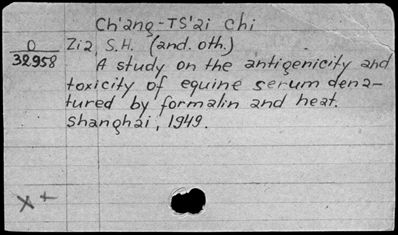 Ch'ang-TS'ai Chi
O
32958
Zia, S.H. (and. oth.)
A study on the antigenicity and
toxicity of equine serum dena-
tured by formalin and heat.
Shanghai, 1949.
X +